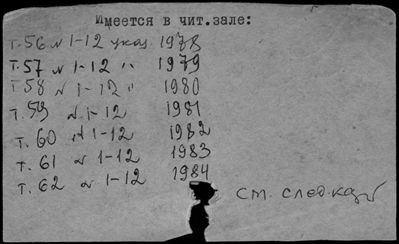 Имеется в чит.зале:
т.56 № 1-12 указ. 1978
т.57 № 1-12 " 1979
т.58 № 1-12 " 1980
т.59 № 1-12 1981
т.60 № 1-12 1982
т.61 № 1-12 1983
т.62 № 1-12 1984
см. след.